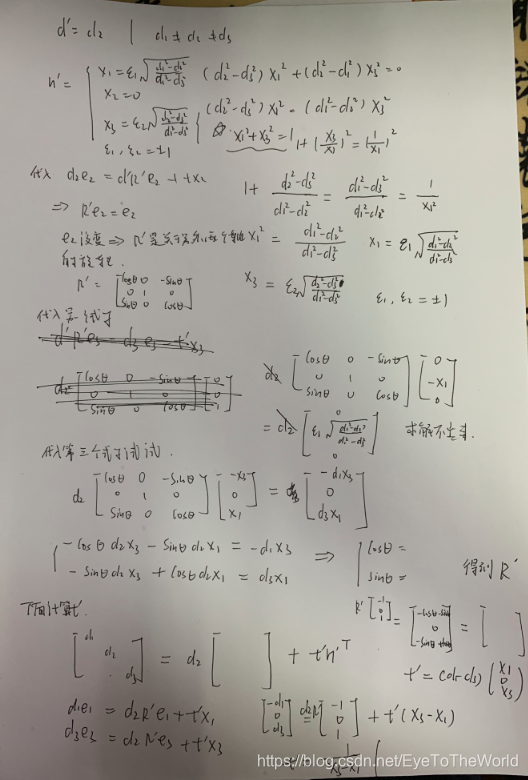 d' = d₂ | d₁ ≠ d₂ ≠ d₃
n' = { x₁ = ε₁√((d₁²-d₂²)/(d₁²-d₃²)) (d₂²-d₃²) x₁² + (d₂²-d₁²) x₃² = 0
x₂ = 0 (d₂²-d₃²) x₁² = (d₁²-d₂²) x₃²
x₃ = ε₂√((d₂²-d₃²)/(d₁²-d₃²)) x₁²+x₃² = 1 1+(x₃/x₁)² = (1/x₁)²
ε₁, ε₂ = ±1
代入 d₂e₂ = d'R'e₂ + t'x₂ 1 + (d₂²-d₃²)/(d₁²-d₂²) = (d₁²-d₃²)/(d₁²-d₂²) = 1/x₁²
⇒ R'e₂ = e₂
e₂ 没变 ⇒ R' 是关于 x₁² = (d₁²-d₂²)/(d₁²-d₃²) x₁ = ε₁√((d₁²-d₂²)/(d₁²-d₃²))
的旋转.
R' = [cosθ 0 -sinθ; 0 1 0; sinθ 0 cosθ] x₃ = ε₂√((d₂²-d₃²)/(d₁²-d₃²)) ε₁, ε₂ = ±1
代入第一个式子
d'R'e₃ = d₃e₃ - t'x₃
d₂ [cosθ 0 -sinθ; 0 1 0; sinθ 0 cosθ] [0; 0; 1] d₂ [cosθ 0 -sinθ; 0 1 0; sinθ 0 cosθ] [0; -x₁; 0]
= d₂ [0; ε₁√((d₁²-d₂²)/(d₁²-d₃²)); 0] 求解不出来.
代入第三个式子试试
d₂ [cosθ 0 -sinθ; 0 1 0; sinθ 0 cosθ] [-x₃; 0; x₁] = [-d₁x₃; 0; d₃x₁]
{ -cosθ d₂x₃ - sinθ d₂x₁ = -d₁x₃ ⇒ { cosθ =
-sinθ d₂x₃ + cosθ d₂x₁ = d₃x₁ sinθ = 得到 R'
下面计算t'. R' [-1; 0; 1] = [-cosθ-sinθ; 0; -sinθ+cosθ] = [ ]
[d₁ d₂ d₃] = d₂ [ ] + t'n'ᵀ t' = (d₁-d₃) [x₁; 0; x₃]
d₁e₁ = d₂R'e₁ + t'x₁ [-d₁; 0; d₃] = d₂R' [-1; 0; 1] + t'(x₃-x₁)
d₃e₃ = d₂R'e₃ + t'x₃
1/(x₃-x₁)
https://blog.csdn.net/EyeToTheWorld